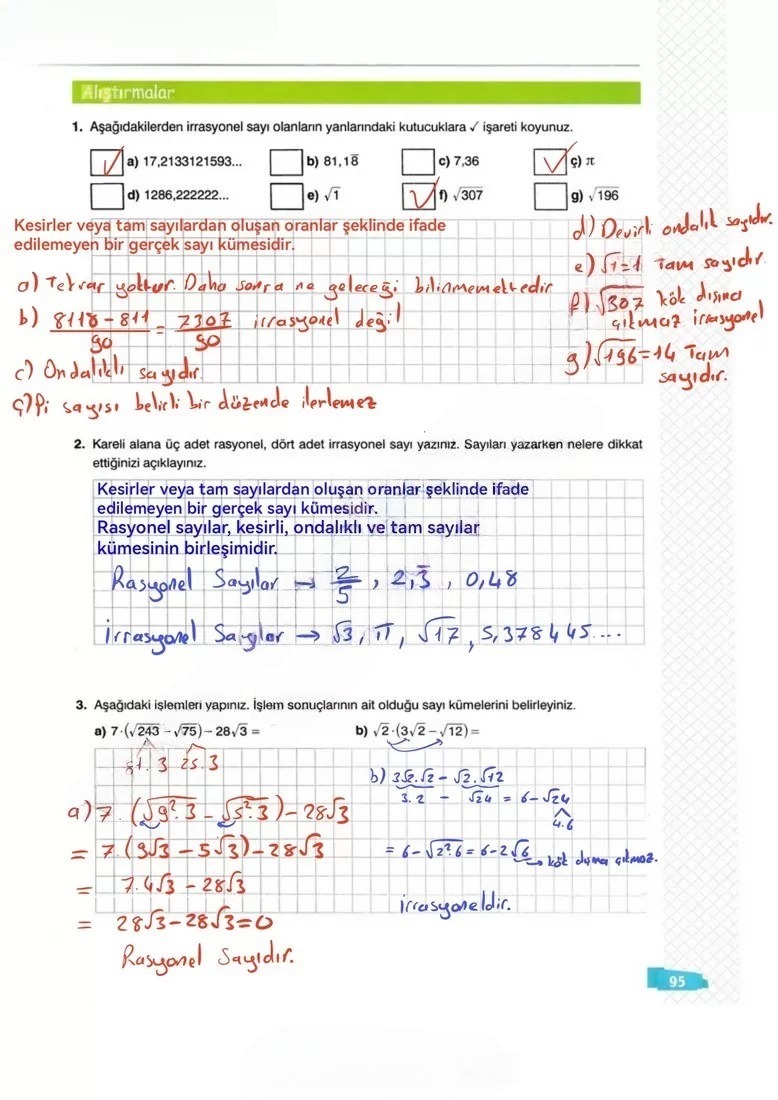 Alıştırmalar
1. Aşağıdakilerden irrasyonel sayı olanların yanlarındaki kutucuklara ✓ işareti koyunuz.
✓ a) 17,2133121593... b) 81,18̅ c) 7,36 ✓ ç) π
d) 1286,222222... e) √1 ✓ f) √307 g) √196
Kesirler veya tam sayılardan oluşan oranlar şeklinde ifade
edilemeyen bir gerçek sayı kümesidir.
a) Tekrar yoktur. Daha sonra ne geleceği bilinmemektedir
b) 8118-811/90 = 7307/90 irrasyonel değil
c) Ondalıklı sayıdır.
ç) Pi sayısı belirli bir düzende ilerlemez
d) Devirli ondalık sayıdır.
e) √1=1 Tam sayıdır
f) √307 kök dışına
çıkmaz irrasyonel
g) √196=14 Tam
sayıdır.
2. Kareli alana üç adet rasyonel, dört adet irrasyonel sayı yazınız. Sayıları yazarken nelere dikkat
ettiğinizi açıklayınız.
Kesirler veya tam sayılardan oluşan oranlar şeklinde ifade
edilemeyen bir gerçek sayı kümesidir.
Rasyonel sayılar, kesirli, ondalıklı ve tam sayılar
kümesinin birleşimidir.
Rasyonel Sayılar → 2/5, 2,3̅, 0,48
İrrasyonel Sayılar → √3, π, √17, 5,378445....
3. Aşağıdaki işlemleri yapınız. İşlem sonuçlarının ait olduğu sayı kümelerini belirleyiniz.
a) 7·(√243 - √75) - 28√3 = b) √2·(3√2 - √12) =
81.3 25.3
a) 7.(√9².3 - √5².3) - 28√3
= 7.(9√3 - 5√3) - 28√3
= 7.4√3 - 28√3
= 28√3 - 28√3 = 0
Rasyonel Sayıdır.
b) 3√2.√2 - √2.√12
3.2 - √24 = 6-√24
4.6
= 6-√2².6 = 6-2√6 → kök dışına çıkmaz.
irrasyoneldir.
95